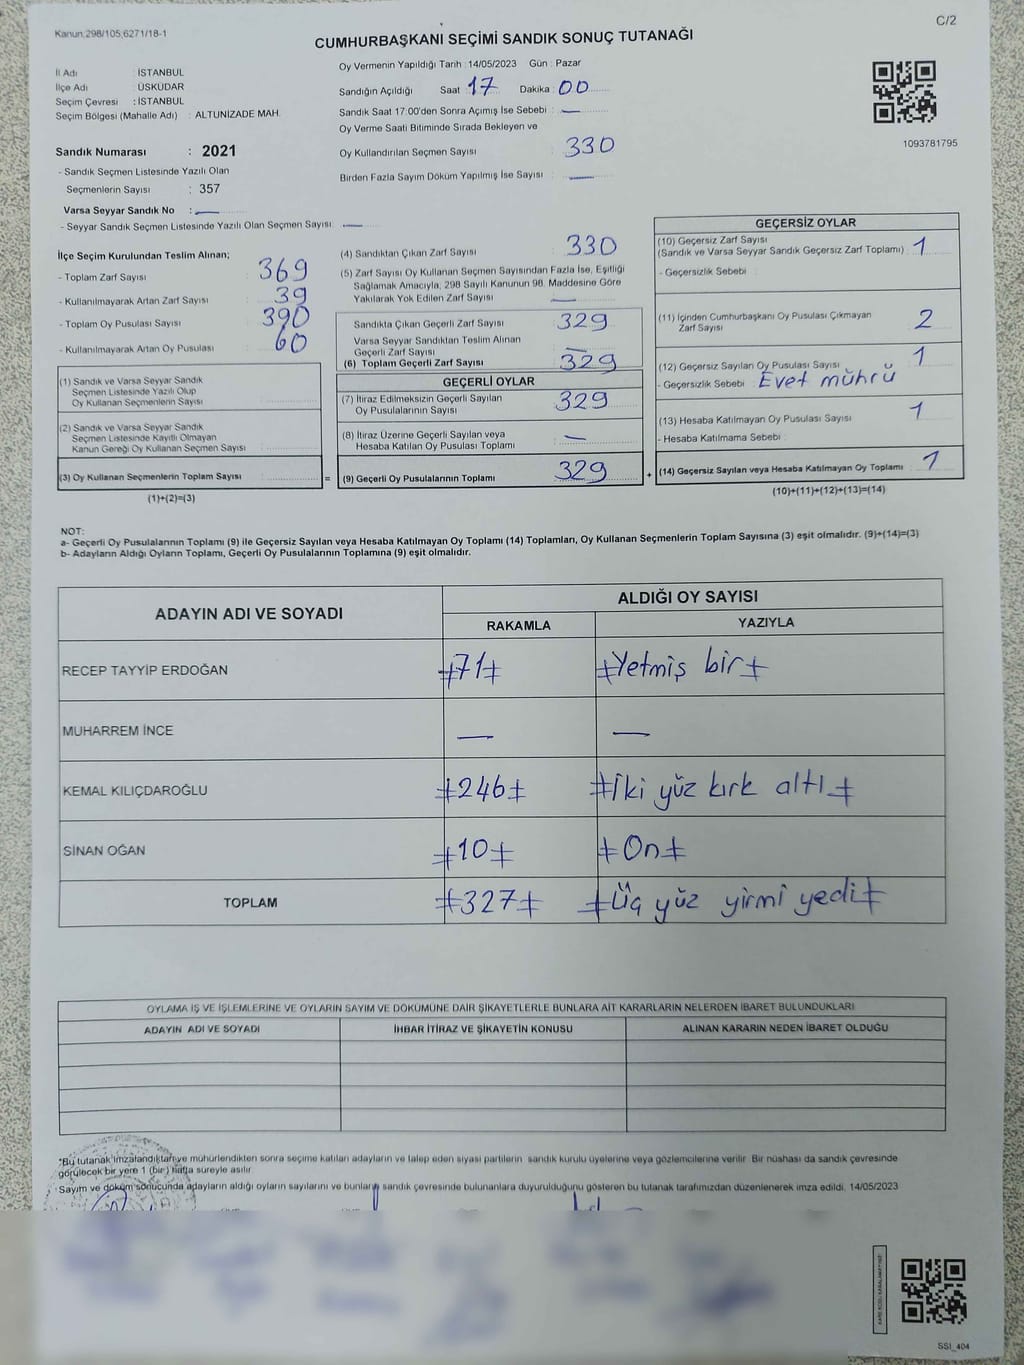 Kanun:298/105;6271/18-1
C/2
CUMHURBAŞKANI SEÇİMİ SANDIK SONUÇ TUTANAĞI
İl Adı : İSTANBUL
İlçe Adı : ÜSKÜDAR
Seçim Çevresi : İSTANBUL
Seçim Bölgesi (Mahalle Adı) : ALTUNİZADE MAH.
Sandık Numarası : 2021
- Sandık Seçmen Listesinde Yazılı Olan
Seçmenlerin Sayısı : 357
Varsa Seyyar Sandık No : —
- Seyyar Sandık Seçmen Listesinde Yazılı Olan Seçmen Sayısı: —
Oy Vermenin Yapıldığı Tarih : 14/05/2023 Gün : Pazar
Sandığın Açıldığı Saat 17 Dakika : 00
Sandık Saat 17:00'den Sonra Açımış İse Sebebi : —
Oy Verme Saati Bitiminde Sırada Bekleyen ve
Oy Kullandırılan Seçmen Sayısı : 330
Birden Fazla Sayım Döküm Yapılmış İse Sayısı : —
1093781795
İlçe Seçim Kurulundan Teslim Alınan;
- Toplam Zarf Sayısı : 369
- Kullanılmayarak Artan Zarf Sayısı : 39
- Toplam Oy Pusulası Sayısı : 390
- Kullanılmayarak Artan Oy Pusulası : 60
(1) Sandık ve Varsa Seyyar Sandık
Seçmen Listesinde Yazılı Olup
Oy Kullanan Seçmenlerin Sayısı :
(2) Sandık ve Varsa Seyyar Sandık
Seçmen Listesinde Kayıtlı Olmayan
Kanun Gereği Oy Kullanan Seçmen Sayısı :
(3) Oy Kullanan Seçmenlerin Toplam Sayısı :
(1)+(2)=(3)
=
(4) Sandıktan Çıkan Zarf Sayısı : 330
(5) Zarf Sayısı Oy Kullanan Seçmen Sayısından Fazla İse, Eşitliği
Sağlamak Amacıyla, 298 Sayılı Kanunun 98. Maddesine Göre
Yakılarak Yok Edilen Zarf Sayısı : —
Sandıkta Çıkan Geçerli Zarf Sayısı : 329
Varsa Seyyar Sandıktan Teslim Alınan
Geçerli Zarf Sayısı : —
(6) Toplam Geçerli Zarf Sayısı : 329
GEÇERLİ OYLAR
(7) İtiraz Edilmeksizin Geçerli Sayılan
Oy Pusulalarının Sayısı : 329
(8) İtiraz Üzerine Geçerli Sayılan veya
Hesaba Katılan Oy Pusulası Toplamı : —
(9) Geçerli Oy Pusulalarının Toplamı : 329
+
GEÇERSİZ OYLAR
(10) Geçersiz Zarf Sayısı
(Sandık ve Varsa Seyyar Sandık Geçersiz Zarf Toplamı) : 1
- Geçersizlik Sebebi :
(11) İçinden Cumhurbaşkanı Oy Pusulası Çıkmayan
Zarf Sayısı : 2
(12) Geçersiz Sayılan Oy Pusulası Sayısı : 1
- Geçersizlik Sebebi : Evet mührü
(13) Hesaba Katılmayan Oy Pusulası Sayısı : 1
- Hesaba Katılmama Sebebi :
(14) Geçersiz Sayılan veya Hesaba Katılmayan Oy Toplamı : 1
(10)+(11)+(12)+(13)=(14)
NOT:
a- Geçerli Oy Pusulalarının Toplamı (9) ile Geçersiz Sayılan veya Hesaba Katılmayan Oy Toplamı (14) Toplamları, Oy Kullanan Seçmenlerin Toplam Sayısına (3) eşit olmalıdır. (9)+(14)=(3)
b- Adayların Aldığı Oyların Toplamı, Geçerli Oy Pusulalarının Toplamına (9) eşit olmalıdır.
ADAYIN ADI VE SOYADI
ALDIĞI OY SAYISI
RAKAMLA YAZIYLA
RECEP TAYYİP ERDOĞAN ‡71‡ ‡Yetmiş bir‡
MUHARREM İNCE — —
KEMAL KILIÇDAROĞLU ‡246‡ ‡İki yüz kırk altı‡
SİNAN OĞAN ‡10‡ ‡On‡
TOPLAM ‡327‡ ‡Üç yüz yirmi yedi‡
OYLAMA İŞ VE İŞLEMLERİNE VE OYLARIN SAYIM VE DÖKÜMÜNE DAİR ŞİKAYETLERLE BUNLARA AİT KARARLARIN NELERDEN İBARET BULUNDUKLARI
ADAYIN ADI VE SOYADI İHBAR İTİRAZ VE ŞİKAYETİN KONUSU ALINAN KARARIN NEDEN İBARET OLDUĞU
*Bu tutanak imzalandıktan ve mühürlendikten sonra seçime katılan adayların ve talep eden siyasi partilerin sandık kurulu üyelerine veya gözlemcilerine verilir. Bir nüshası da sandık çevresinde
görülecek bir yere 1 (bir) hafta süreyle asılır.
Sayım ve döküm sonucunda adayların aldığı oyların sayılarını ve bunların sandık çevresinde bulunanlara duyurulduğunu gösteren bu tutanak tarafımızdan düzenlenerek imza edildi. 14/05/2023
SSI_404